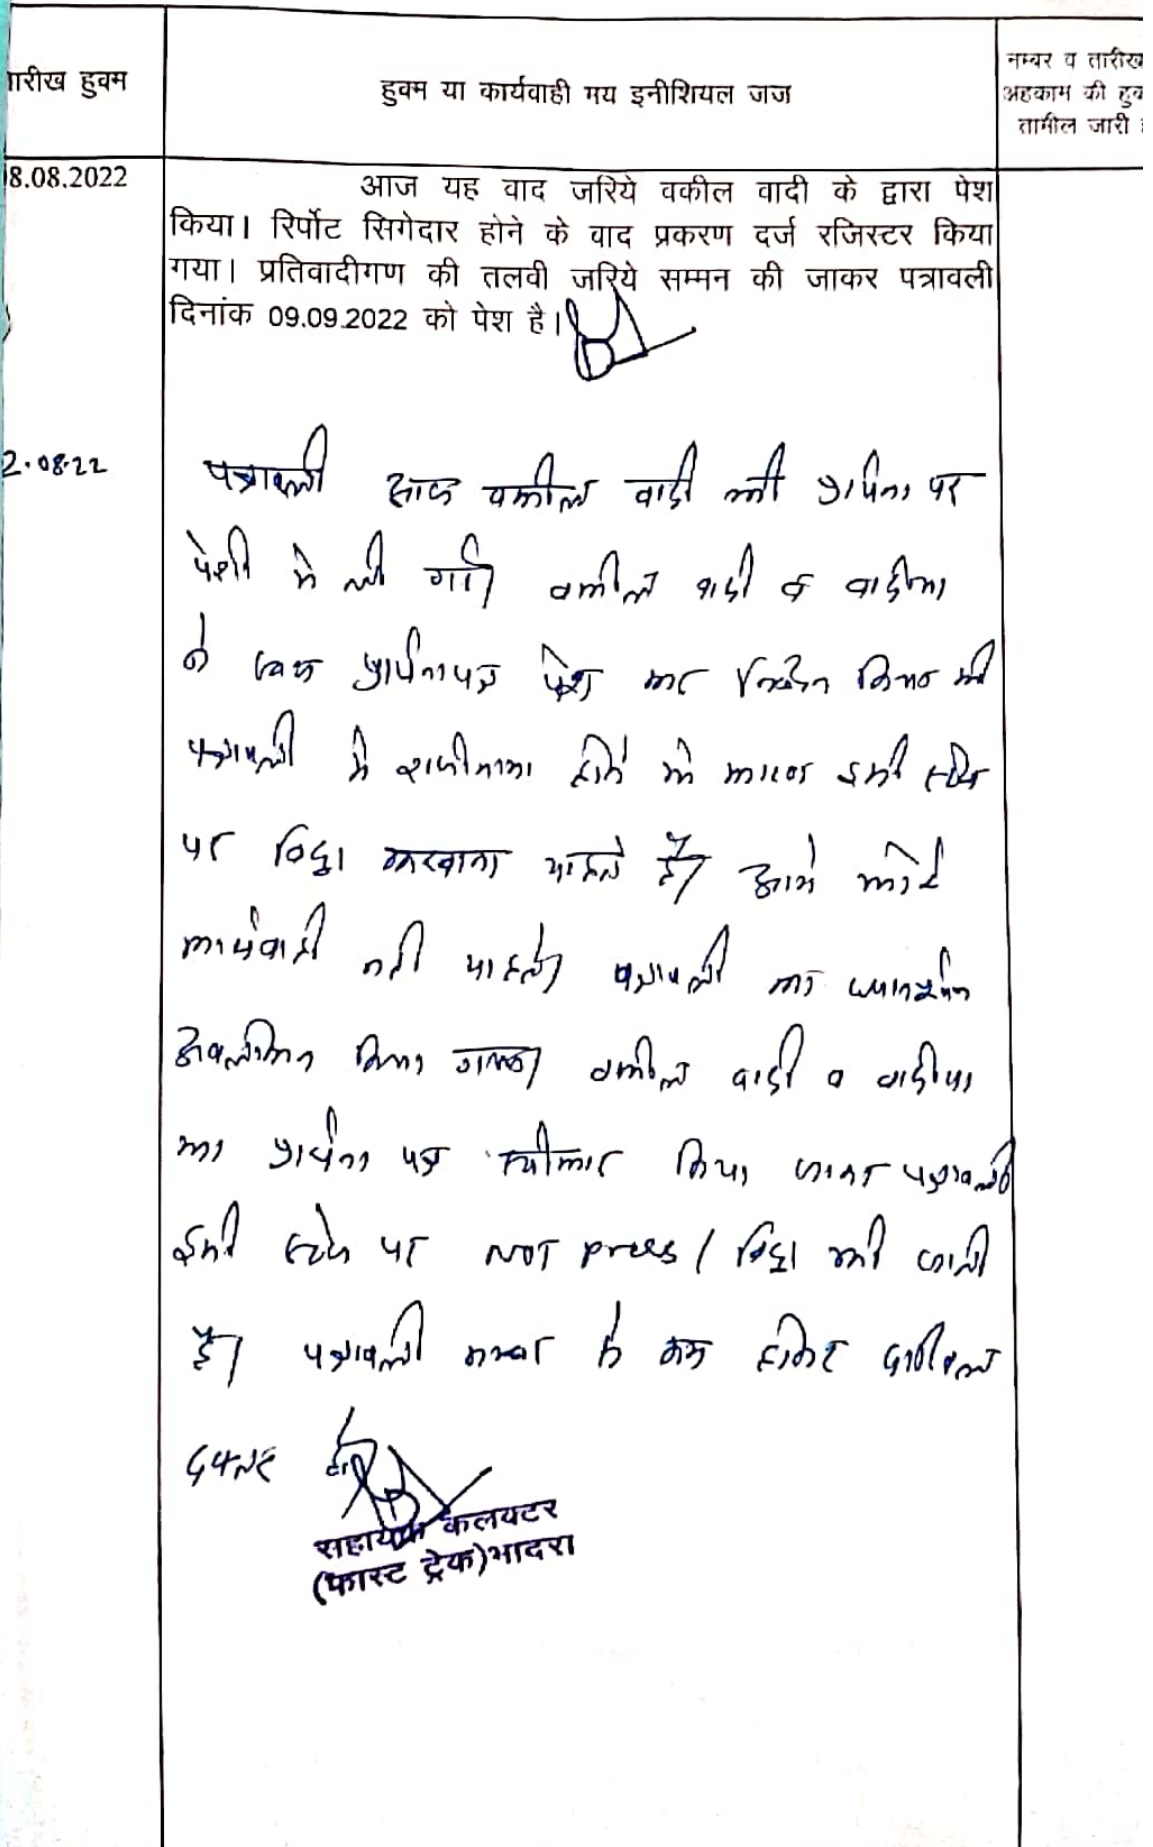 ारीख हुक्म
हुक्म या कार्यवाही मय इनीशियल जज
नम्बर व तारीख
अहकाम की हुक
तामील जारी
8.08.2022
आज यह वाद जरिये वकील वादी के द्वारा पेश
किया। रिर्पोट सिगेदार होने के वाद प्रकरण दर्ज रजिस्टर किया
गया। प्रतिवादीगण की तलवी जरिये सम्मन की जाकर पत्रावली
दिनांक 09.09.2022 को पेश है।
2.08.22
पत्रावली आज वकील वादी की प्रार्थना पर
पेशी मे ली गई। वकील वादी व वादीया
ने एक प्रार्थनापत्र पेश कर निवेदन किया की
पत्रावली मे राजीनामा होने के कारण इसी स्टेज
पर विड्रा करवाना चाहते है। आगे कोई
कार्यवाही नही चाहते। पत्रावली का ध्यानपूर्वक
अवलोकन किया गया। वकील वादी व वादीया
का प्रार्थना पत्र स्वीकार किया जाकर पत्रावली
इसी स्टेज पर NOT press / विड्रा की जाती
है। पत्रावली नम्बर से कम होकर दाखिल
दफ्तर हो।
सहायक कलक्टर
(फास्ट ट्रेक) भादरा